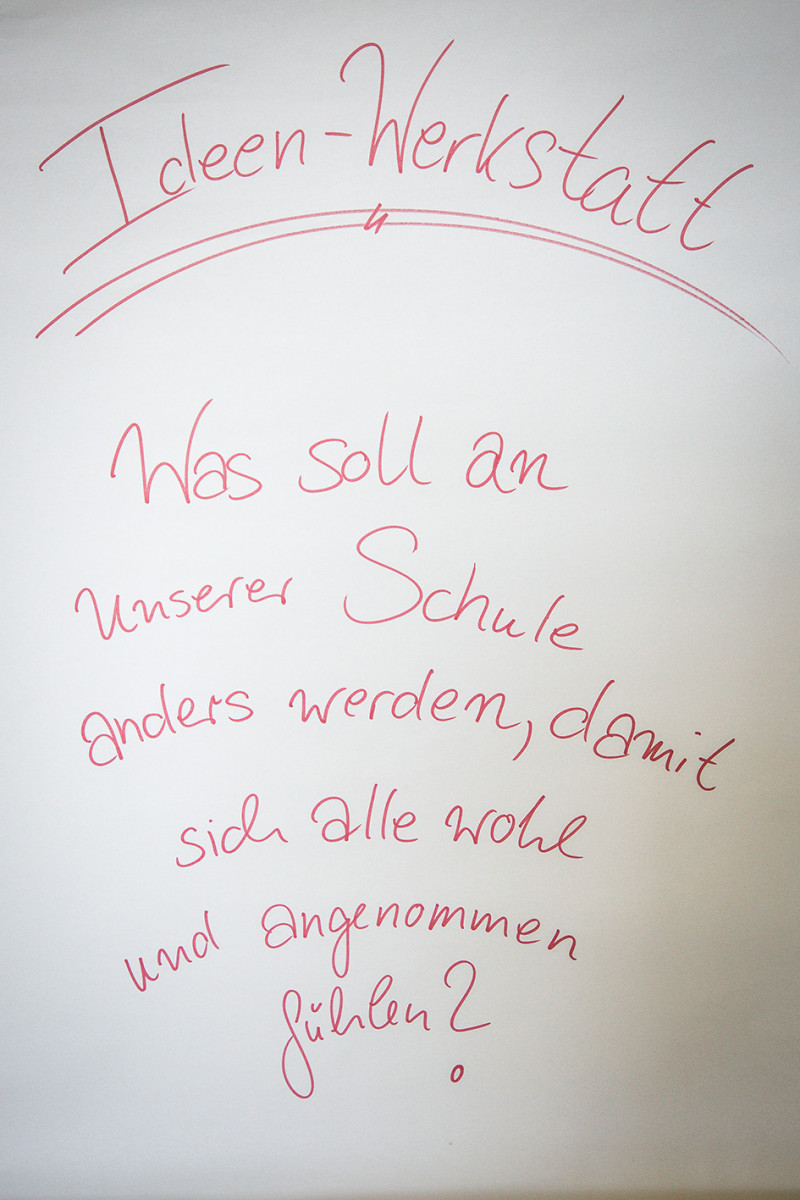 Ideen-Werkstatt
Was soll an
unserer Schule
anders werden, damit
sich alle wohl
und angenommen
fühlen?